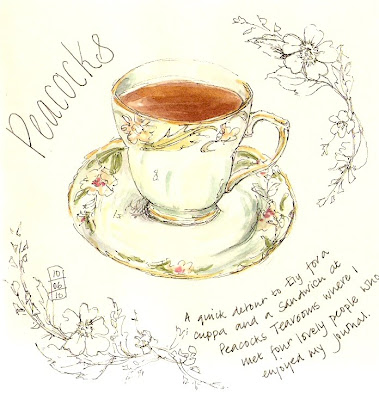 Peacocks
10
06
10
A quick detour to Ely for a
cuppa and a sandwich at
Peacocks Tearooms where I
met four lovely people who
enjoyed my journal.